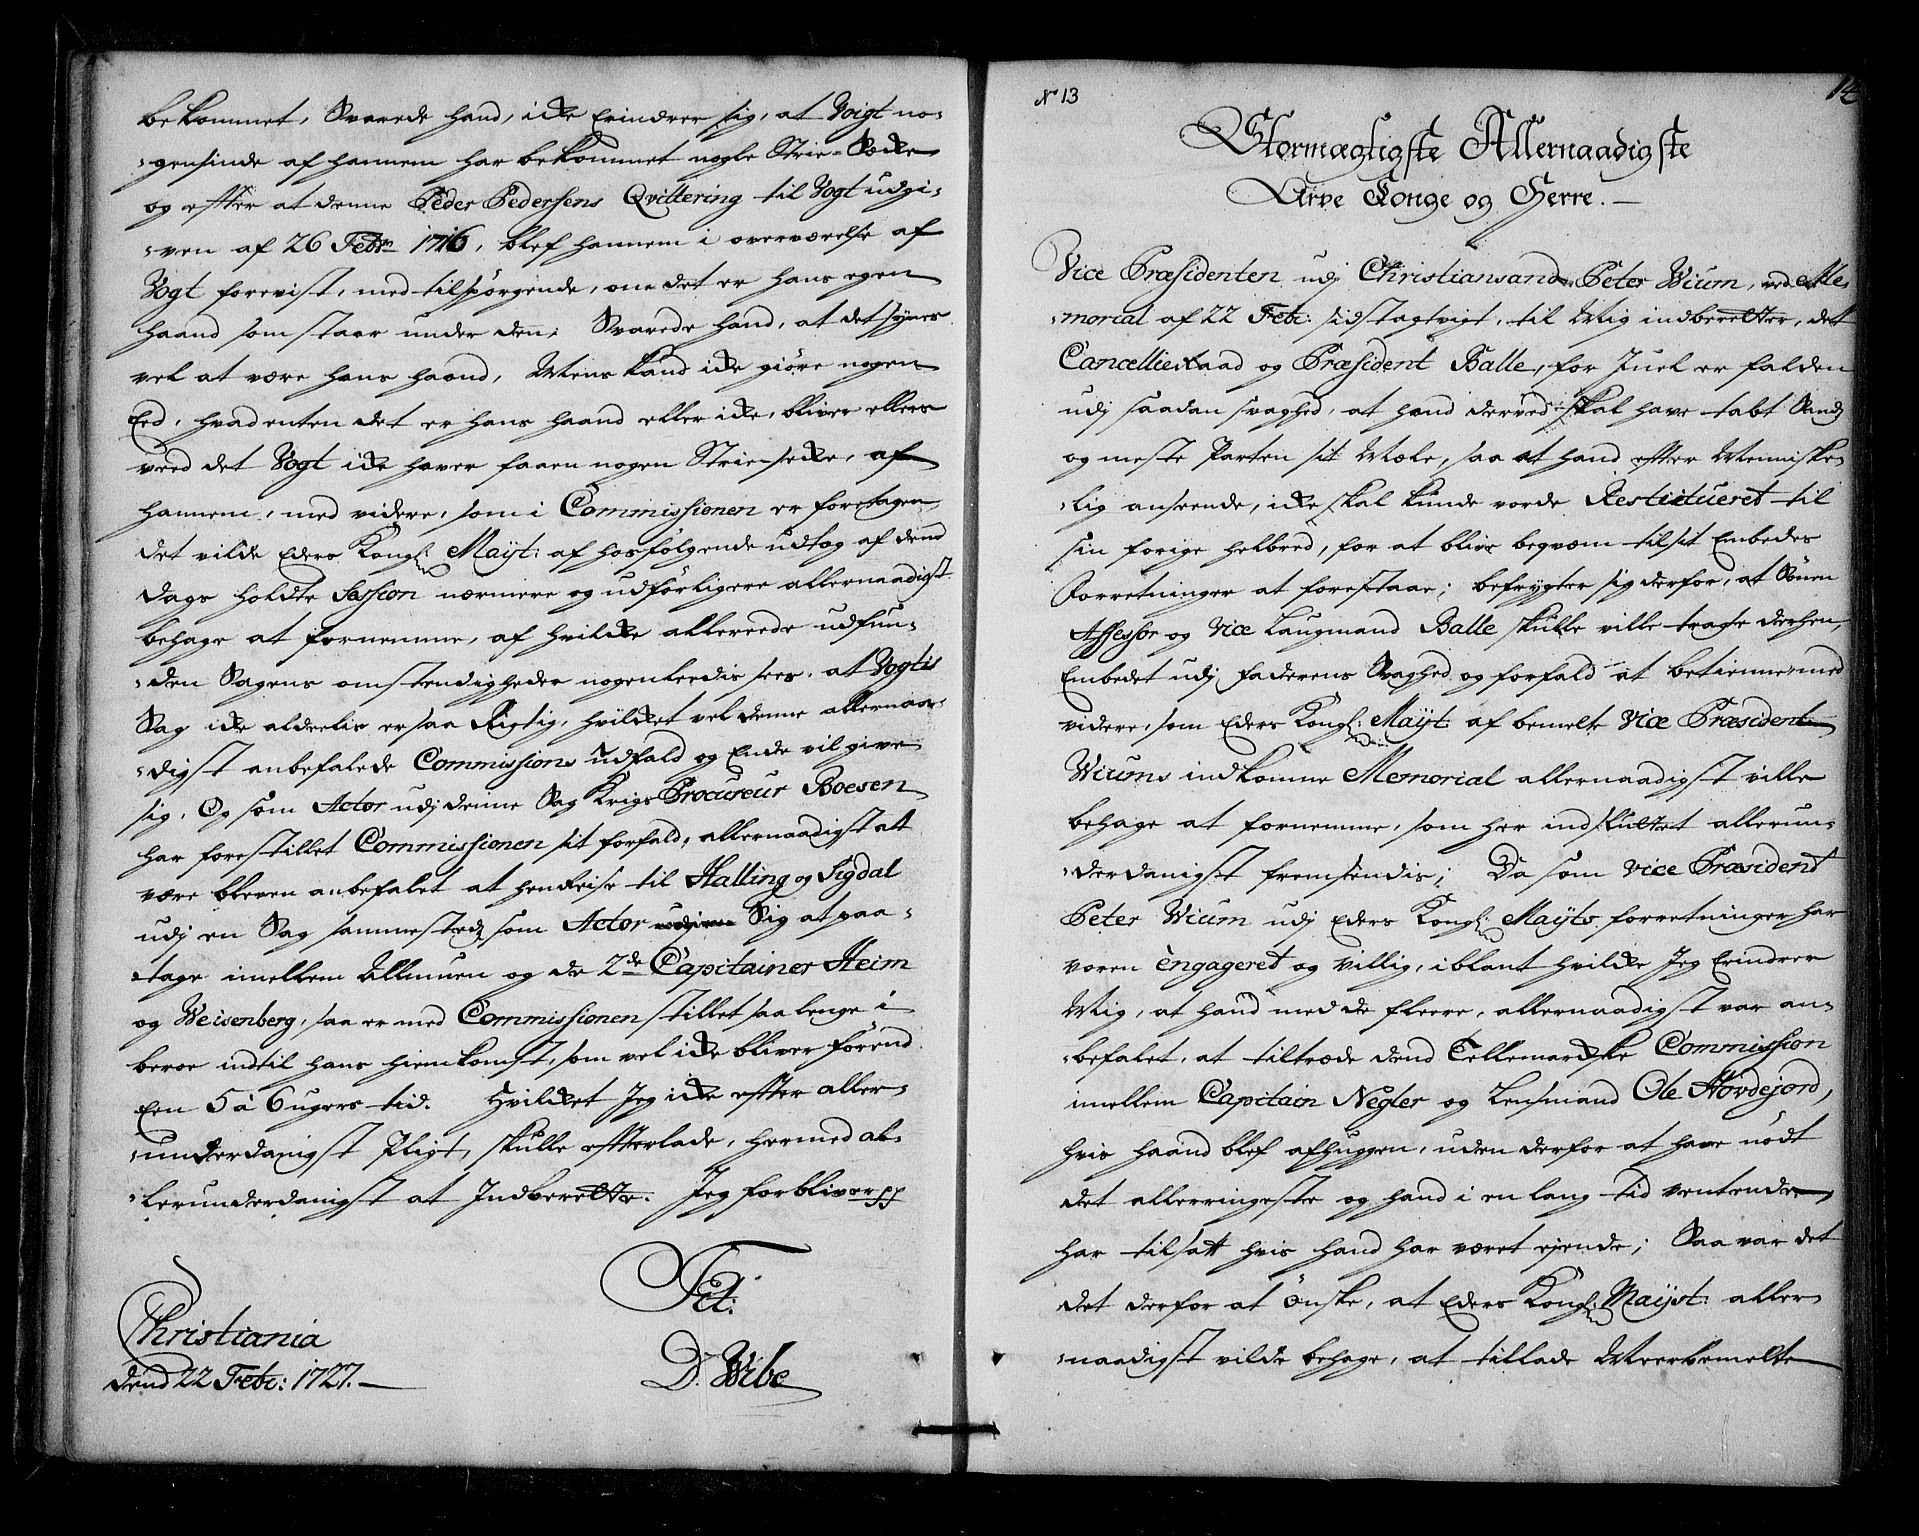 bekommet, Svarede hand, icke Erindrer sig, at Voigt no-
gensinde af hannem har bekommet nogle Strie-Secke
og efter at denne Peder Pedersens Qvittering til Vogt udgi-
ven af 26 Febr 1716, blef hannem i overværelse af
Vogt forevist, med tilspørgende, om det er hans egen
haand som staar under den; Svarede hand, at det synes
vel at være hans haand, Mens kand icke giøre nogen
Eed, hvad enten det er hans haand eller icke, bliver ellers
veed det Vogt icke haver faaen nogen Strie-secke, af
hannem, med videre, som i Commissionen er foretagen
det vilde Eders Kongl: Mayt: af hosfølgende udtog af dend
dags holdte Session nærmere og udførligere allernaadigst
behage at fornemme, af hvilcke allereede udfun-
den Sagens omstendigheder nogenleedis sees, at Vogtis
Sag icke alderlis er saa Rigtig, hvilcket vel denne allernaa-
digst anbefalede Commissions Udfald og Ende vil give
sig. Og som Actor udj denne Sag Krigs Procureur Boesen
har forestillet Commissionen sit forfald, allernaadigst att
være bleven anbefalet at henreise til Halling og Sigdal
udj en Sag sammesteds som Actor Sig at paa-
tage imellem Allmuen og de 2de Capitainer Heim
og Weisenberg, saa er med Commissionen stillet saa lenge i
beroe indtil hans hiemkomst, som vel icke bliver førend
Een 5 à 6 ugers tid. Hvilcket Jeg icke efter aller-
underdanigst Pligt, skulle efterlade, hermed al-
lerunderdanigst at Indberette. Jeg forbliver pp
Tit:
Christiania
dend 22 Febr: 1727.
D. Wibe
N 13
14
Stormægtigste Allernaadigste
Arve Konge og Herre.
Vice Præsidenten udj Christiansand Peter Wium, ved Me-
morial af 22 Febr: sidstagtvigt, til Mig indberetter, det
Cancellie Raad og Præsident Balle, for Juel er falden
udj saadan svaghed, at hand derved skal have tabt Sands
og meste Parten sit Mæle, saa at hand efter Menniske-
lig anseende, icke skal kunde vorde Restitueret til
sin forige helbred, for at blive beqvem til sit Embedes
Forretninger at forestaae; befrygter sig derfor, at Sønen
Assessor og Vice Laugmand Balle skulle ville tragte derhen,
Embedet udj Faderens Svaghed og forfald at betienne med
videre, som Eders Kongl: Mayt: af bemelte Vice Præsident
Wiums indkomne Memorial allernaadigst ville
behage at fornemme, som her indsluttet allerun-
derdanigst fremsendis; Da som vice Præsident
Peter Wium udj Eders Kongl: Mayts forretninger har
voren engageret og villig, iblant hvilcke Jeg Erindrer
Mig, at hand med de fleere, allernaadigst var an-
befalet, at tiltræde dend Tellemarckske Commission
imellem Capitain Negler og Lensmand Ole Hovdejord,
hvis haand blef afhuggen, uden derfor at have nødt
det allerringeste og hand i en lang tid ventende
har tilsatt hvis hand har været ejende; Saa var det
det derfor at ønske, at Eders Kongl: Mayst: aller-
naadigst vilde behage, at tillade Meerbemelte